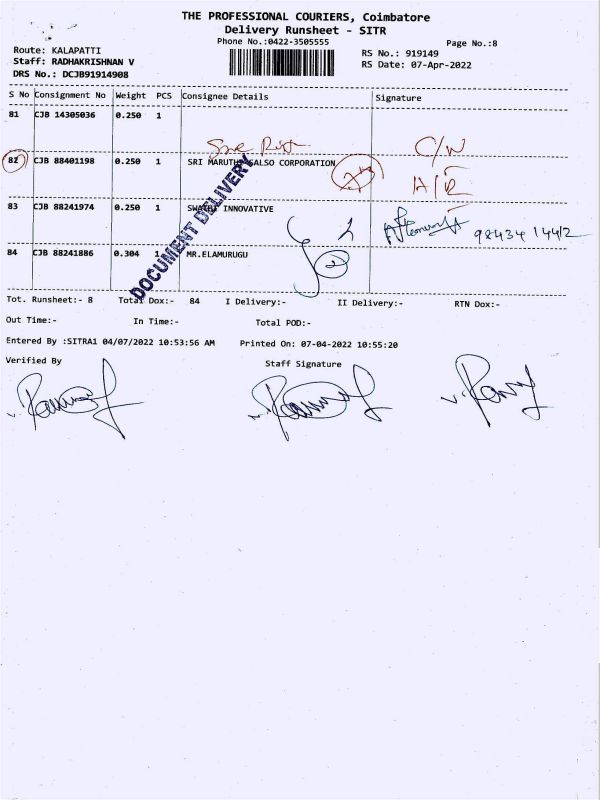 THE PROFESSIONAL COURIERS, Coimbatore
Delivery Runsheet - SITR
Phone No.:0422-3505555
Page No.:8
Route: KALAPATTI
RS No.: 919149
Staff: RADHAKRISHNAN V
RS Date: 07-Apr-2022
DRS No.: DCJB91914908
S No Consignment No Weight PCS Consignee Details Signature
81 CJB 14305036 0.250 1
C/N
82 CJB 88401198 0.250 1 SRI MARUTHI SALSO CORPORATION
A/R
83 CJB 88241974 0.250 1 SWATHI INNOVATIVE
98434 14412
84 CJB 88241886 0.304 1 MR.ELAMURUGU
DOCUMENT DELIVERY
Tot. Runsheet:- 8 Total Dox:- 84 I Delivery:- II Delivery:- RTN Dox:-
Out Time:- In Time:- Total POD:-
Entered By :SITRA1 04/07/2022 10:53:56 AM Printed On: 07-04-2022 10:55:20
Verified By Staff Signature